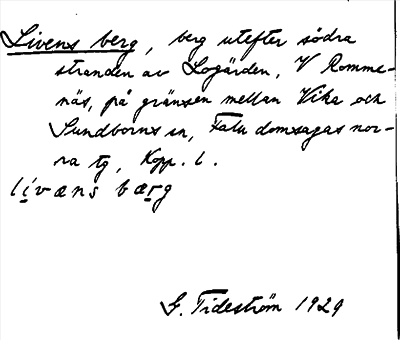 Livens berg, berg utefter södra
stranden av Logärden, V Romme-
näs, på gränsen mellan Vika och
Sundborns sn, Falu domsagas nor-
ra tg, Kopp. l.
livæns bærg
G. Tideström 1929